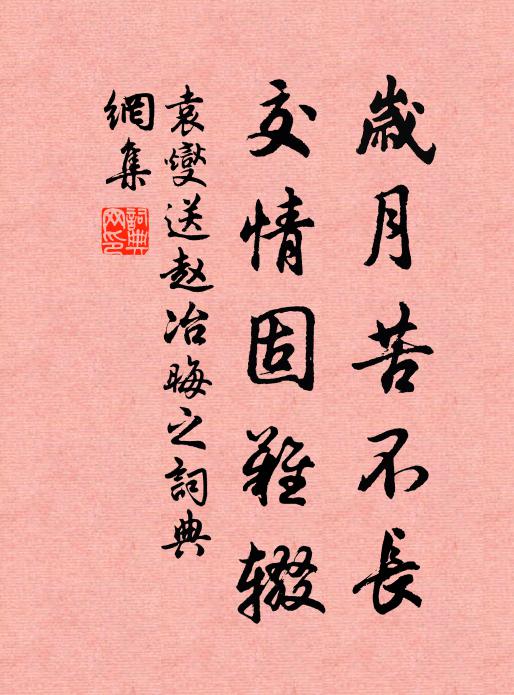 歲月苦不長
交情固難辍
袁燮送赵冶晦之詞典
網集
詞典網印